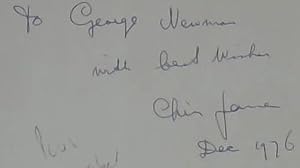 To George Newman
with best Wishes
Chris
Dec 1976